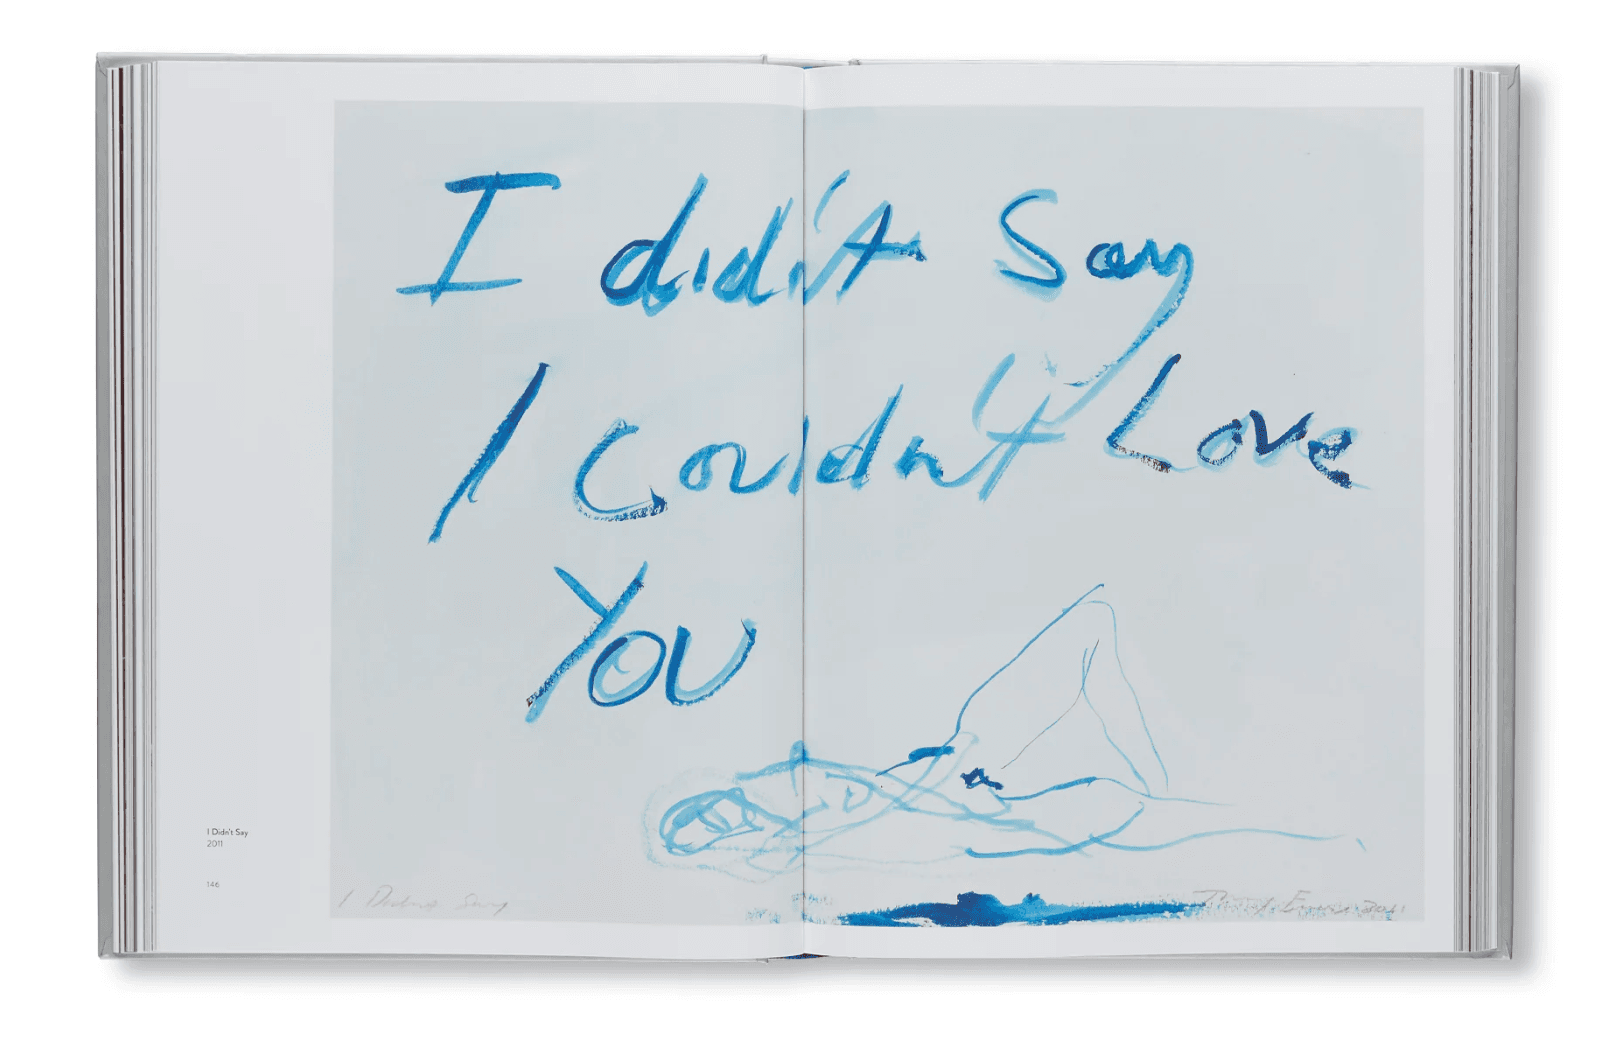 I didn't Say
I Couldn't Love
You
I Didn't Say
2011
146
I Didn't Say
Tracey Emin 2011